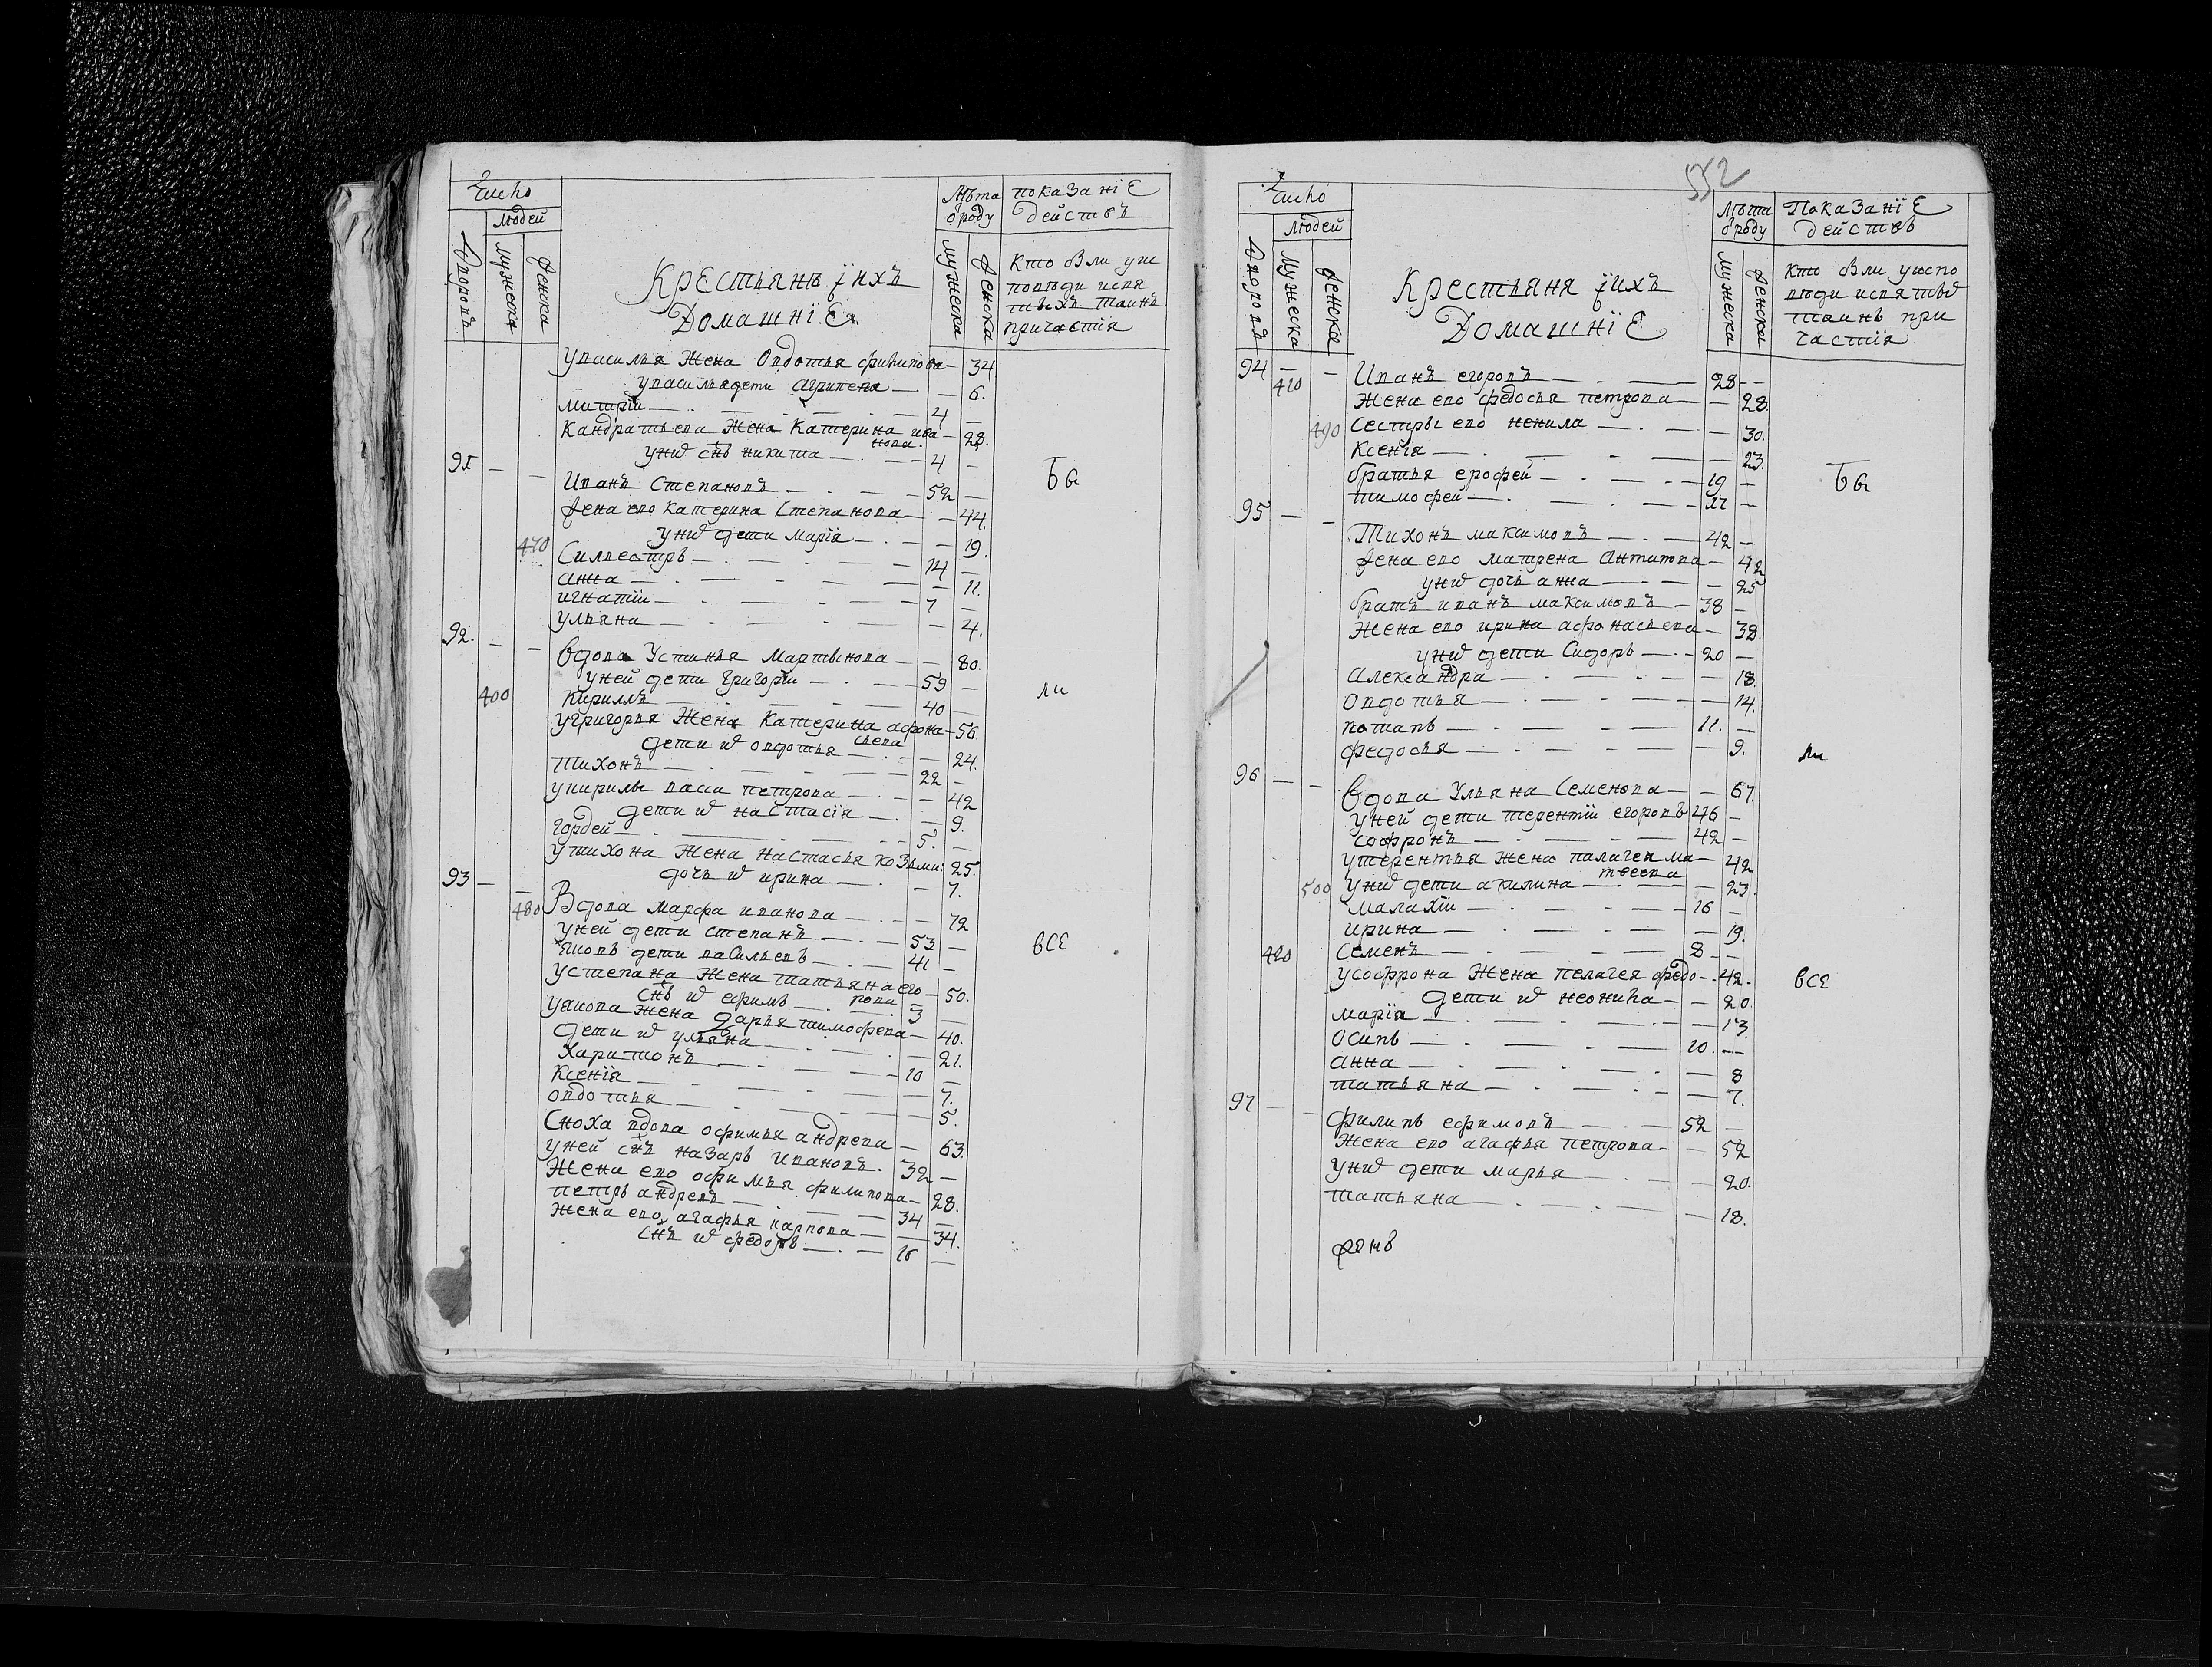 Число
Людей
Дворовъ
Мужеска
Женска
Крестьянѣ їихъ
Домашнїе
Лѣта
ѿроду
Мужеска
Женска
показанїе
действъ
Кто были уис
поведи исвя
тыхъ таинъ
причастїя
Увасилья Жена Овдотья филипова — 34
увасилья дети агрипена — 6.
митрїи — 4 —
Кандратьева Жена Катерина ива
нова — 28.
униѿ снъ никита — 4 —
91 — —
Иванъ Степановъ — 52 —
Жена ево Катерина Степанова — 44.
униѿ дети марїя — 19.
470 Силвестръ — 14 —
анна — 11.
игнатїи — 7 —
ульяна — 4.
92. — —
Вдова Устинья Мартынова — 80.
уней дети григорїи — 59 —
400 кирилъ — 40 —
угригорья Жена Катерина афона
сьева — 56.
дети ѿ овдотья — 24.
тихонъ — 22 —
укирилы васа петрова — 42
дети ѿ настасїя — 9.
гордей — 5. —
утихона Жена настасья козьми: 25.
дочь ѿ ирина — 7.
93 — —
480 Вдова марфа иванова — 72
уней дети степанъ — 53 —
яковъ дети васильевъ — 41 —
устепана Жена татьяна его
рова — 50.
снъ ѿ ефимъ — 3 —
уякова Жена дарья тимофева — 40.
дети ѿ ульяна — 21.
харитонъ — 10 —
ксенїя — 7.
овдотья — 5.
Сноха вдова офимья андрева — 63.
уней снъ назаръ ивановъ. 32 —
Жена ево офимья филипова — 28.
петръ андревъ — 34 —
Жена ево агафья карпова — 34.
снъ ѿ федоръ — 16 —
Бы
ли
все
552
Число
Людей
Дворовъ
Мужеска
Женска
Крестьяня їихъ
Домашнїе
Лѣта
ѿроду
Мужеска
Женска
Показанїе
действъ
Кто были уиспо
веди исвятыѿ
таинъ при
частїя
94 — —
410 Иванъ егоровъ — 28 —
Жена ево федосья петрова — 28.
490 сестры ево ненила — 30.
Ксенїя — 23.
братья ерофей — 19 —
тимофей — 17 —
95 — —
Тихонъ максимовъ — 42 —
Жена ево матрена Антипова — 42
униѿ дочь анна — 25
братъ иванъ максимовъ — 38 —
Жена ево ирина афонасьева — 38.
униѿ дети Сидоръ — 20 —
Александра — 18.
Овдотья — 14.
потапъ — 11. —
федосья — 9.
96 — —
Вдова Ульяна Семенова — 67.
уней дети терентїи егоровъ 46 —
софронъ — 42 —
утерентья жена палагея ма
твеева — 42
500 униѿ дети акилина — 23.
малахїи — 16 —
ирина — 19.
420 семенъ — 8 —
усофрона Жена пелагея федо — 42.
дети ѿ неонила — 20.
марїя — 13.
осипъ — 10. —
анна — 8
татьяна — 7.
97 — —
филипъ ефимовъ — 52 —
Жена ево агафья петрова — 52
униѿ дети марья — 20.
татьяна — 18.
Бы
ли
все